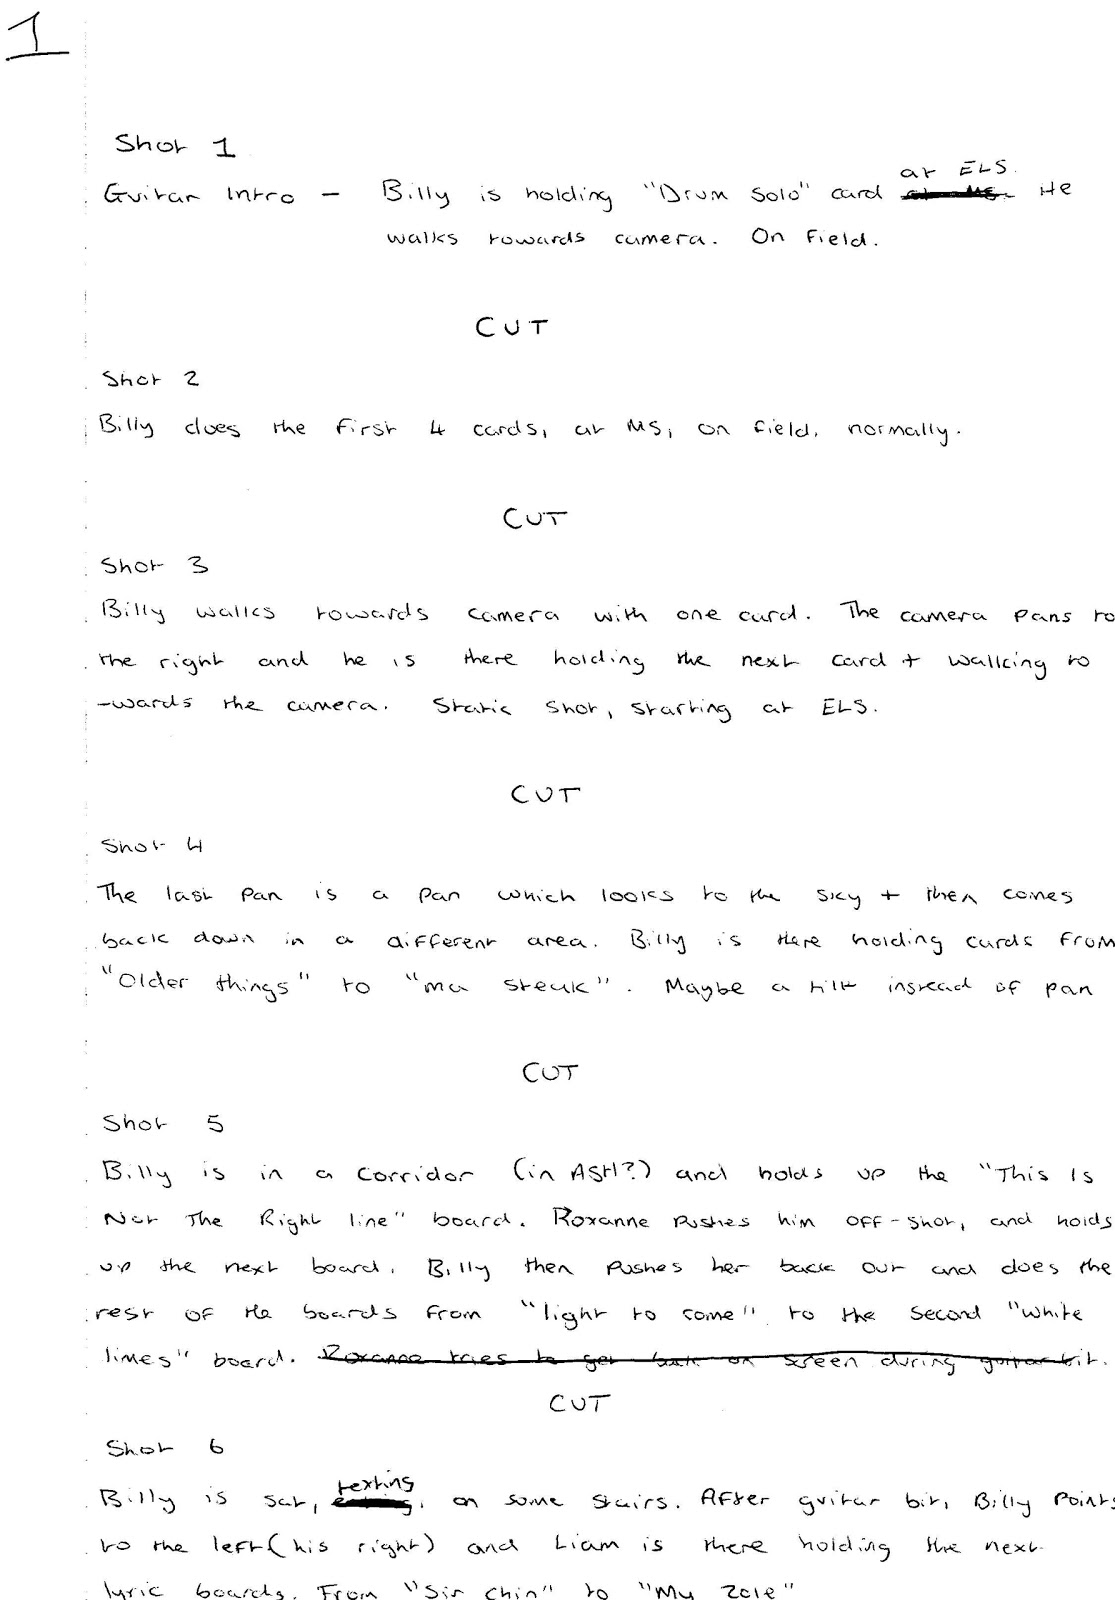 1
Shot 1
at ELS.
Guitar Intro - Billy is holding "Drum Solo" card at MS. He
walks towards camera. On field.
CUT
Shot 2
Billy does the first 4 cards, at MS, on field, normally.
CUT
Shot 3
Billy walks towards camera with one card. The camera pans to
the right and he is there holding the next card + walking to
-wards the camera. Static shot, starting at ELS.
CUT
Shot 4
The last pan is a pan which looks to the sky + then comes
back down in a different area. Billy is there holding cards from
"Older things" to "ma steak". Maybe a tilt instead of pan
CUT
Shot 5
Billy is in a corridor (in ASH?) and holds up the "This Is
Not The Right line" board. Roxanne pushes him off-shot, and holds
up the next board. Billy then pushes her back out and does the
rest of the boards from "light to come" to the second "white
lines" board. Roxanne tries to get back on screen during guitar bit.
CUT
Shot 6
texting
Billy is sat, on some stairs. After guitar bit, Billy points
to the left (his right) and Liam is there holding the next
lyric boards. From "Sir Chin" to "My Zole"